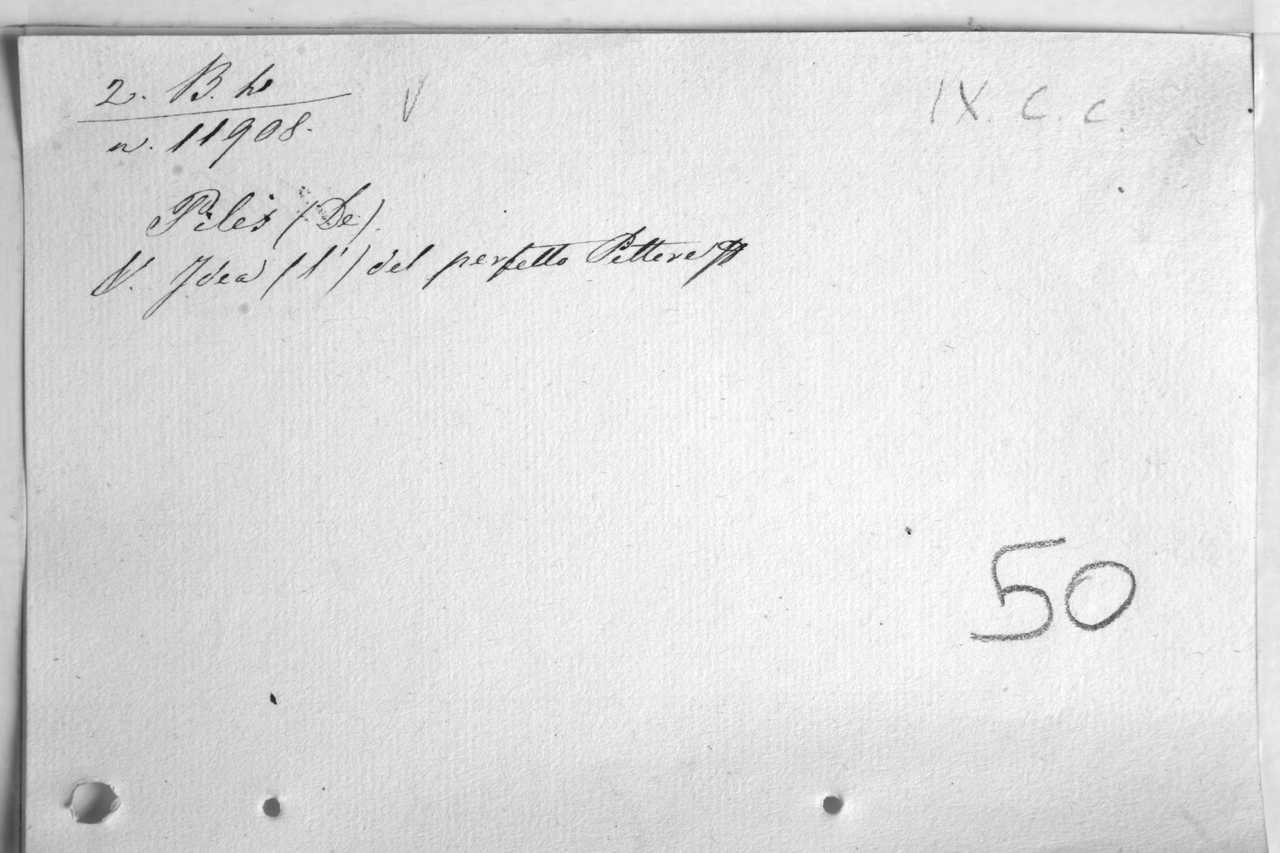 2. B. h
V
IX. C. C.
n. 11908.
Piles (De).
V. Idea (l') del perfetto Pittore
50